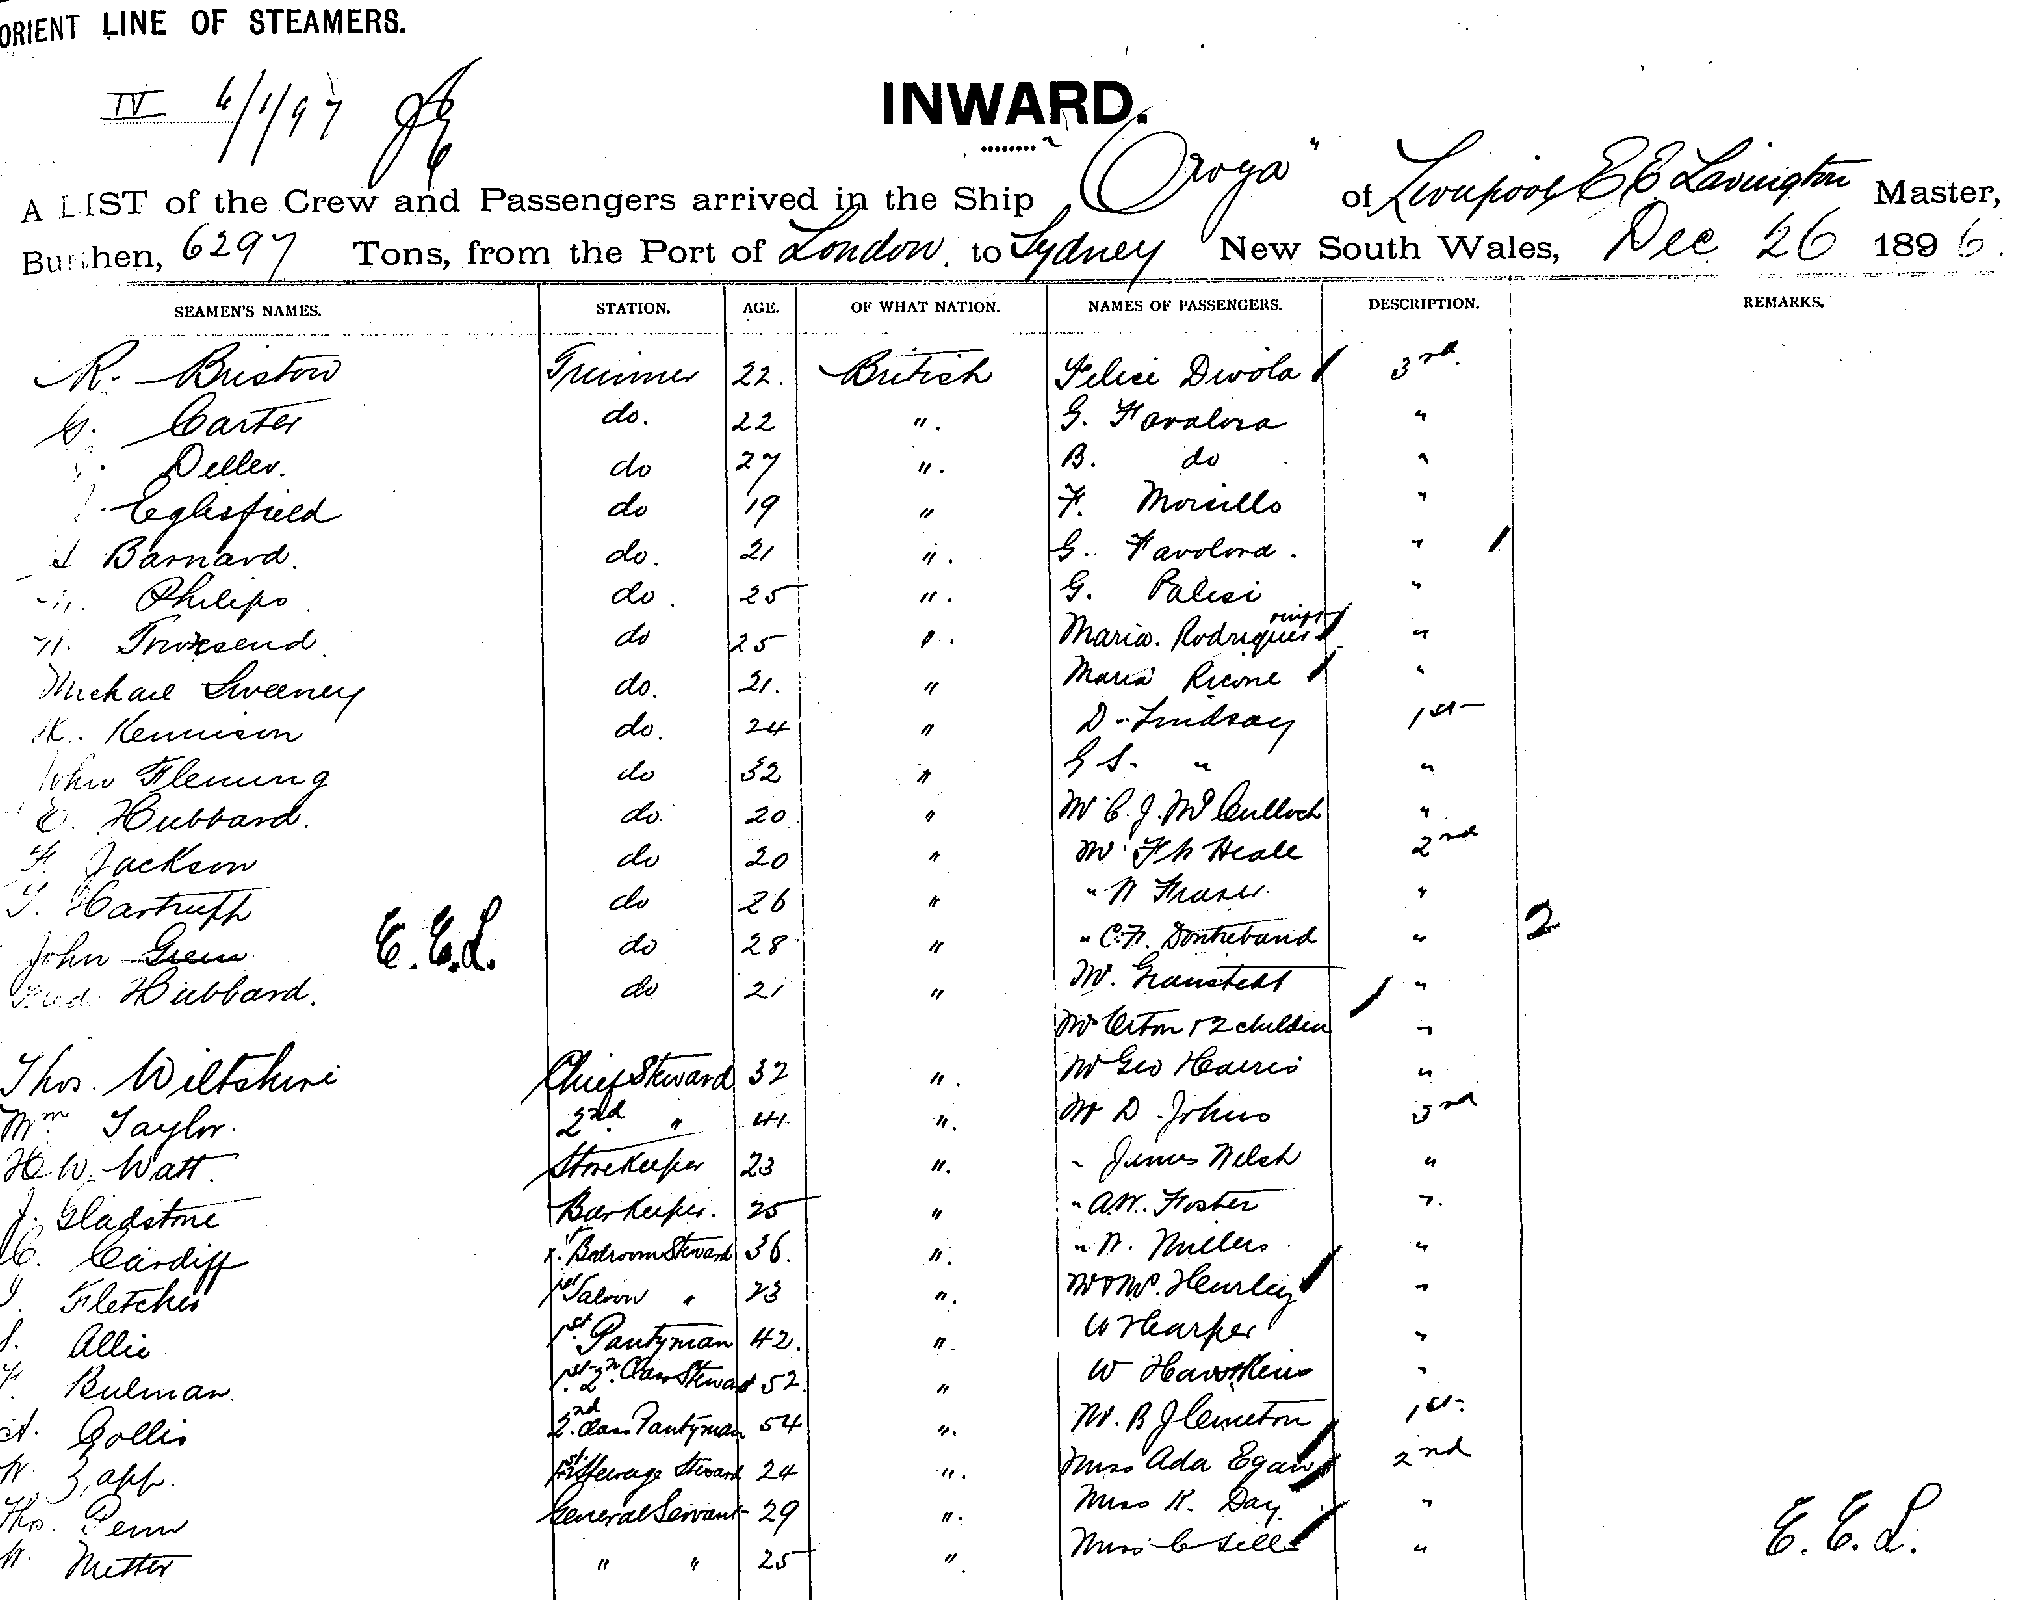 ORIENT LINE OF STEAMERS.
IV 6/1/97
INWARD.
A LIST of the Crew and Passengers arrived in the Ship "Oroya" of Liverpool E E Lavington Master,
Burthen, 6297 Tons, from the Port of London to Sydney New South Wales, Dec 26 1896.
SEAMEN'S NAMES. STATION. AGE. OF WHAT NATION. NAMES OF PASSENGERS. DESCRIPTION. REMARKS.
R. Bristow Trimmer 22. British Felice Divola 3rd
G. Carter do. 22 ". G. Favalora "
Deller. do 27 ". B. do "
Eglesfield do 19 " F. "
Barnard. do. 21 ". G. Favolora. "
Philips do. 25 ". G. Palesi "
Townsend do 25 ". Maria. Rodriques "
Michael Sweeney do. 21. " Maria Ricone "
Kennison do. 24 " D. Lindsay 1st
John Fleming do 32 " G S. " "
E. Hubbard. do. 20 " Mr C. J. McCulloch "
F. Jackson do 20 " Mr Heale 2nd
T. Hartrupp do 26 " " Fraser "
John Green E.E.L. do 28 " " "
Fred Hubbard. do 21 " Mr. Granstedt "
2
Mr Orton & 2 children "
Thos. Wiltshire Chief Steward 32 ". Mr Geo Harris "
Wm Taylor. 2nd " 41 ". Mr D. Johns 3rd
H W. Watt. Storekeeper 23 ". " James Welsh "
J. Gladstone Barkeeper. 25 " " A.W. Foster "
C. Cardiff Bedroom Steward 36. ". " W. Millers "
Fletcher 1st Saloon " 23 ". Mr & Mrs. Henrley "
Allie 1st Pantyman 42. " W Harper "
Bulman. 1st 2nd Class Steward 52. " W Hawkins "
Gollis 2nd Class Pantyman 54 ". Mr. B J 1st
W. Zapp. 1st Steerage Steward 24 ". Miss Ada Egan 2nd
Thos. Penn General Servant 29 ". Miss K. Day "
W. Mitter " " 25 ". Miss C Sell "
E. E. L.